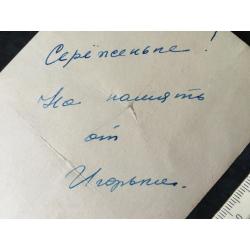 Серёженьке!
На память
от
Игорька.